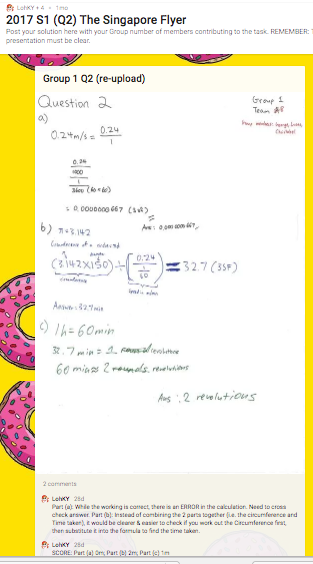 LohKY + 4 • 1mo
2017 S1 (Q2) The Singapore Flyer
Post your solution here with your Group number of members contributing to the task. REMEMBER:
presentation must be clear.
Group 1 Q2 (re-upload)
Question 2
Group 1
Team
a)
0.24m/s = 0.24
1
0.24
1000
1
3600 (60×60)
= 0.0000000667 (3sf)
Ans: 0.0000000667
b) π=3.142
(3.142×150) ÷ (0.24
1
60) = 32.7 (3SF)
circumference
Answer: 32.7min
c) 1h = 60min
32.7 min = 1 revolution
60 min ≈ 2 rounds revolutions
Ans: 2 revolutions
2 comments
LohKY 28d
Part (a): While the working is correct, there is an ERROR in the calculation. Need to cross
check answer. Part (b): Instead of combining the 2 parts together (i.e. the circumference and
Time taken), it would be clearer & easier to check if you work out the Circumference first,
then substitute it into the formula to find the time taken.
LohKY 28d
SCORE: Part (a) 0m; Part (b) 2m; Part (c) 1m